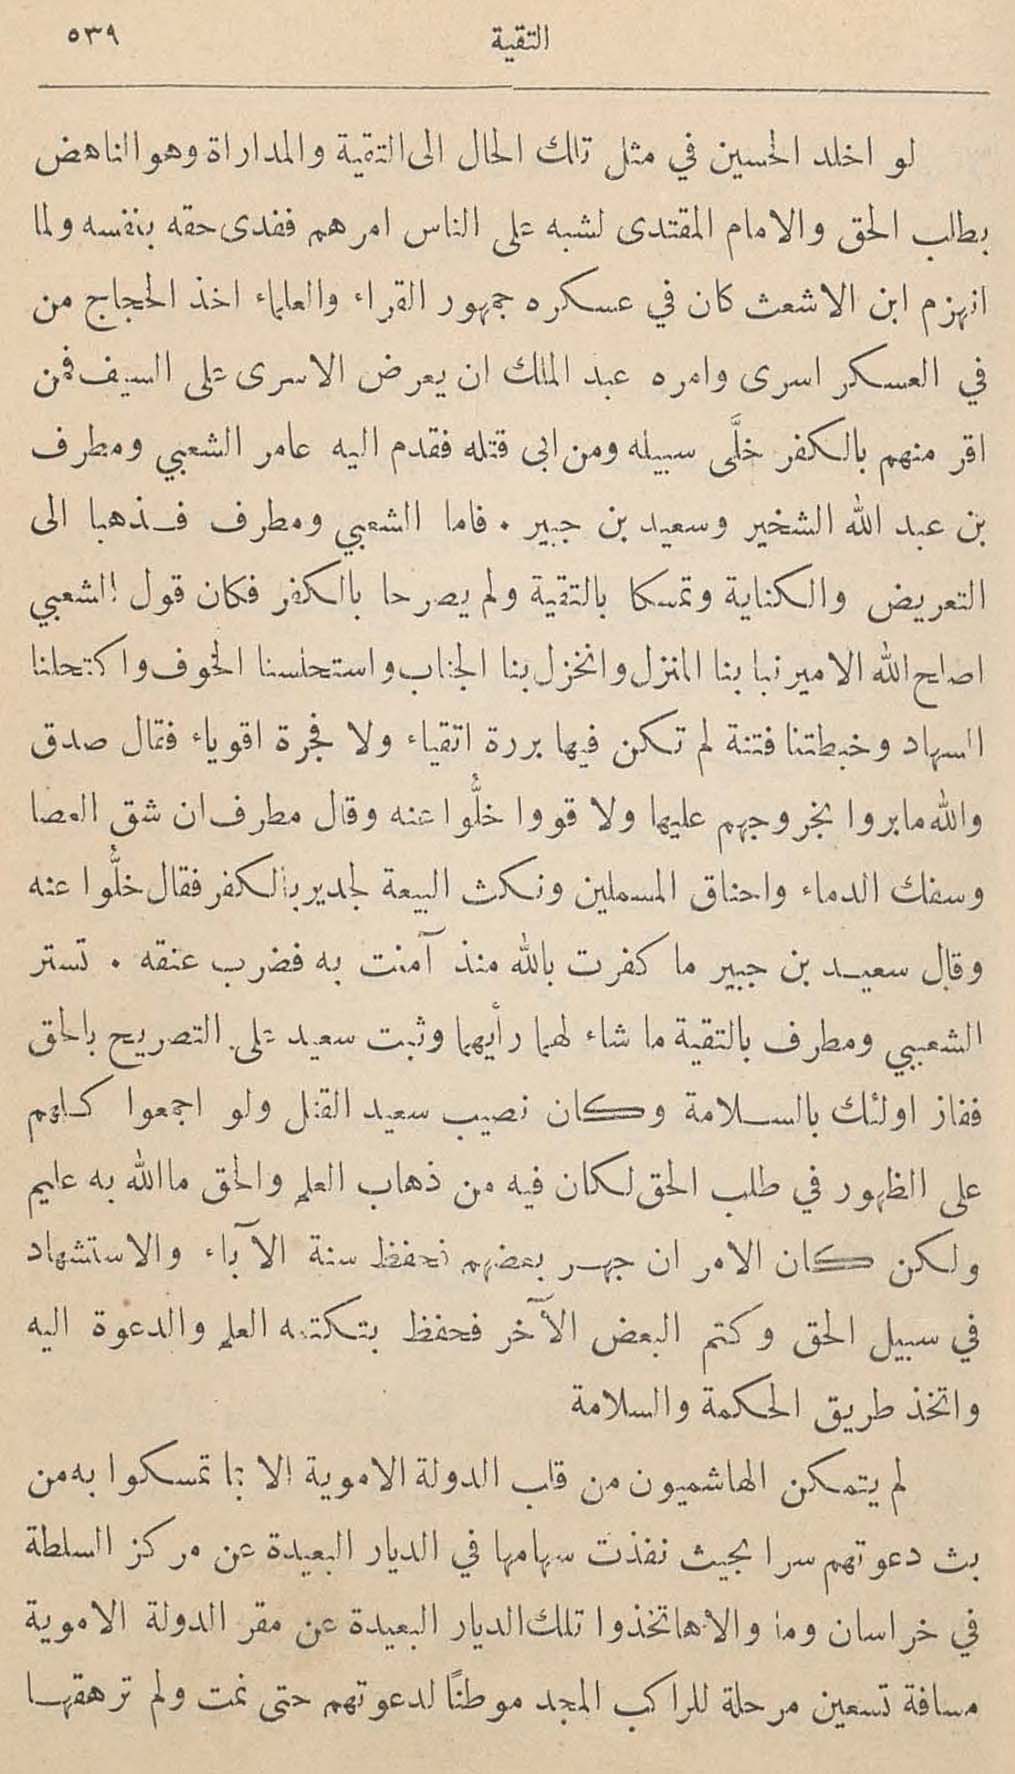 التقية ٥٣٩
لو اخلد الحسين في مثل تلك الحال الى التقية والمداراة وهو الناهض
بطلب الحق والامام المقتدى لشبه على الناس امرهم ففدى حقه بنفسه ولما
انهزم ابن الاشعث كان في عسكره جمهور القراء والعلماء اخذ الحجاج من
في العسكر اسرى وامره عبد الملك ان يعرض الاسرى على السيف فمن
اقر منهم بالكفر خلَّى سبيله ومن ابى قتله فقدم اليه عامر الشعبي ومطرف
بن عبد الله الشخير وسعيد بن جبير . فاما الشعبي ومطرف فذهبا الى
التعريض والكناية وتمسكا بالتقية ولم يصرحا بالكفر فكان قول الشعبي
اصلح الله الامير نبا بنا المنزل وانخزل بنا الجناب واستحلسنا الخوف واكتحلنا
السهاد وخبطتنا فتنة لم تكن فيها بررة اتقياء ولا فجرة اقوياء فقال صدق
والله ما بروا بخروجهم عليها ولا قووا خلُّوا عنه وقال مطرف ان شق العصا
وسفك الدماء واحناق المسملين ونكث البيعة لجدير بالكفر فقال خلُّوا عنه
وقال سعيد بن جبير ما كفرت بالله منذ آمنت به فضرب عنقه . تستر
الشعبي ومطرف بالتقية ما شاء لهما رأيهما وثبت سعيد على التصريح بالحق
ففاز اولئك بالسلامة وكان نصيب سعيد القتل ولو اجمعوا كلهم
على الظهور في طلب الحق لكان فيه من ذهاب العلم والحق ما الله به عليم
ولكن كان الامر ان جهر بعضهم فحفظ سنة الآباء والاستشهاد
في سبيل الحق وكتم البعض الآخر فحفظ بتكتمه العلم والدعوة اليه
واتخذ طريق الحكمة والسلامة
لم يتمكن الهاشميون من قلب الدولة الاموية الا بما تمسكوا به من
بث دعوتهم سرا بحيث نفذت سهامها في الديار البعيدة عن مركز السلطة
في خراسان وما والاها تخذوا تلك الديار البعيدة عن مقر الدولة الاموية
مسافة تسعين مرحلة للراكب المجد موطنًا لدعوتهم حتى نمت ولم ترهقها